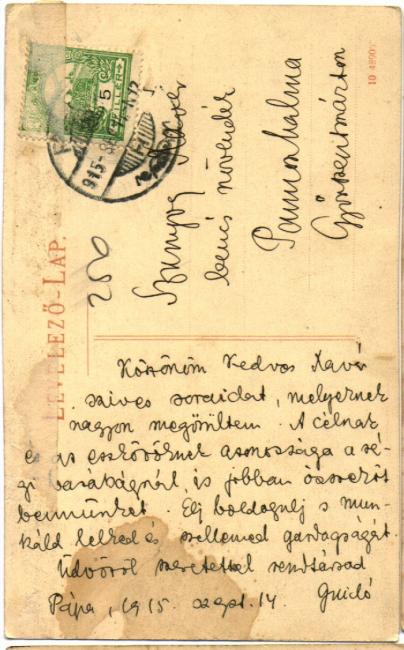 LEVELEZŐ-LAP.
5
FILLÉR
915
250
Szunyog Xavér
bencés növendék
Pannonhalma
Győrszentmárton
Köszönöm kedves Xavér
szives soraidat, melyeknek
nagyon megörültem. A célnak
és az eszközöknek azonossága a ré-
gi barátságnál is jobban összeköt
bennünket. Élj boldogulj s mun-
káld lelked és szellemed gazdagságát.
Üdvözöl szeretettel rendtársad
Pápa, 1915. szept. 14 Guidó